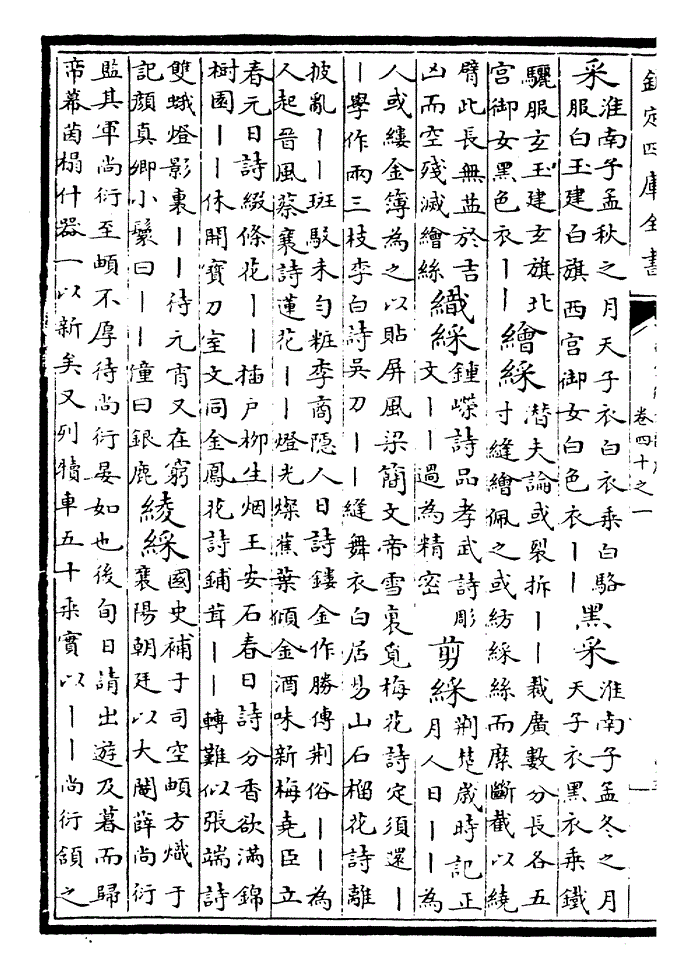 欽定四庫全書
卷四十之一
采 淮南子孟秋之月天子衣白衣乘白駱
服白玉建白旗西宫御女白色衣丨丨 黑采 淮南子孟冬之月
天子衣黑衣乘鐵
驪服玄玉建玄旗北
宫御女黑色衣丨丨 繪綵 潜夫論或裂拆丨丨裁廣數分長各五
寸縫繪佩之或紡綵絲而縻斷截以繞
臂此長無益於吉
凶而空殘滅繒絲 織綵 鍾嶸詩品孝武詩彫
文丨丨過為精密 剪綵 荆楚歲時記正
月人日丨丨為
人或縷金簿為之以貼屏風梁簡文帝雪裏覓梅花詩定須還丨
丨學作兩三枝李白詩吳刀丨丨縫舞衣白居易山石榴花詩離
披亂丨丨斑駁未勻粧李商隠人日詩鏤金作勝傳荆俗丨丨為
人起晉風蔡襄詩蓮花丨丨燈光燦蕉葉傾金酒味新梅堯臣立
春元日詩綴條花丨丨插户柳生烟王安石春日詩分香欲滿錦
樹園丨丨休開寳刀室文同金鳳花詩鋪茸丨丨轉難似張端詩
雙蛾燈影裏丨丨待元宵又在窮
記顔真卿小鬟曰丨丨僮曰銀鹿 綾綵 國史補于司空頔方熾于
襄陽朝廷以大閹薛尚衍
監其軍尚衍至頔不厚待尚衍晏如也後旬日請出遊及暮而歸
帝幕茵榻什器一以新矣又列犢車五十乘實以丨丨尚衍頷之